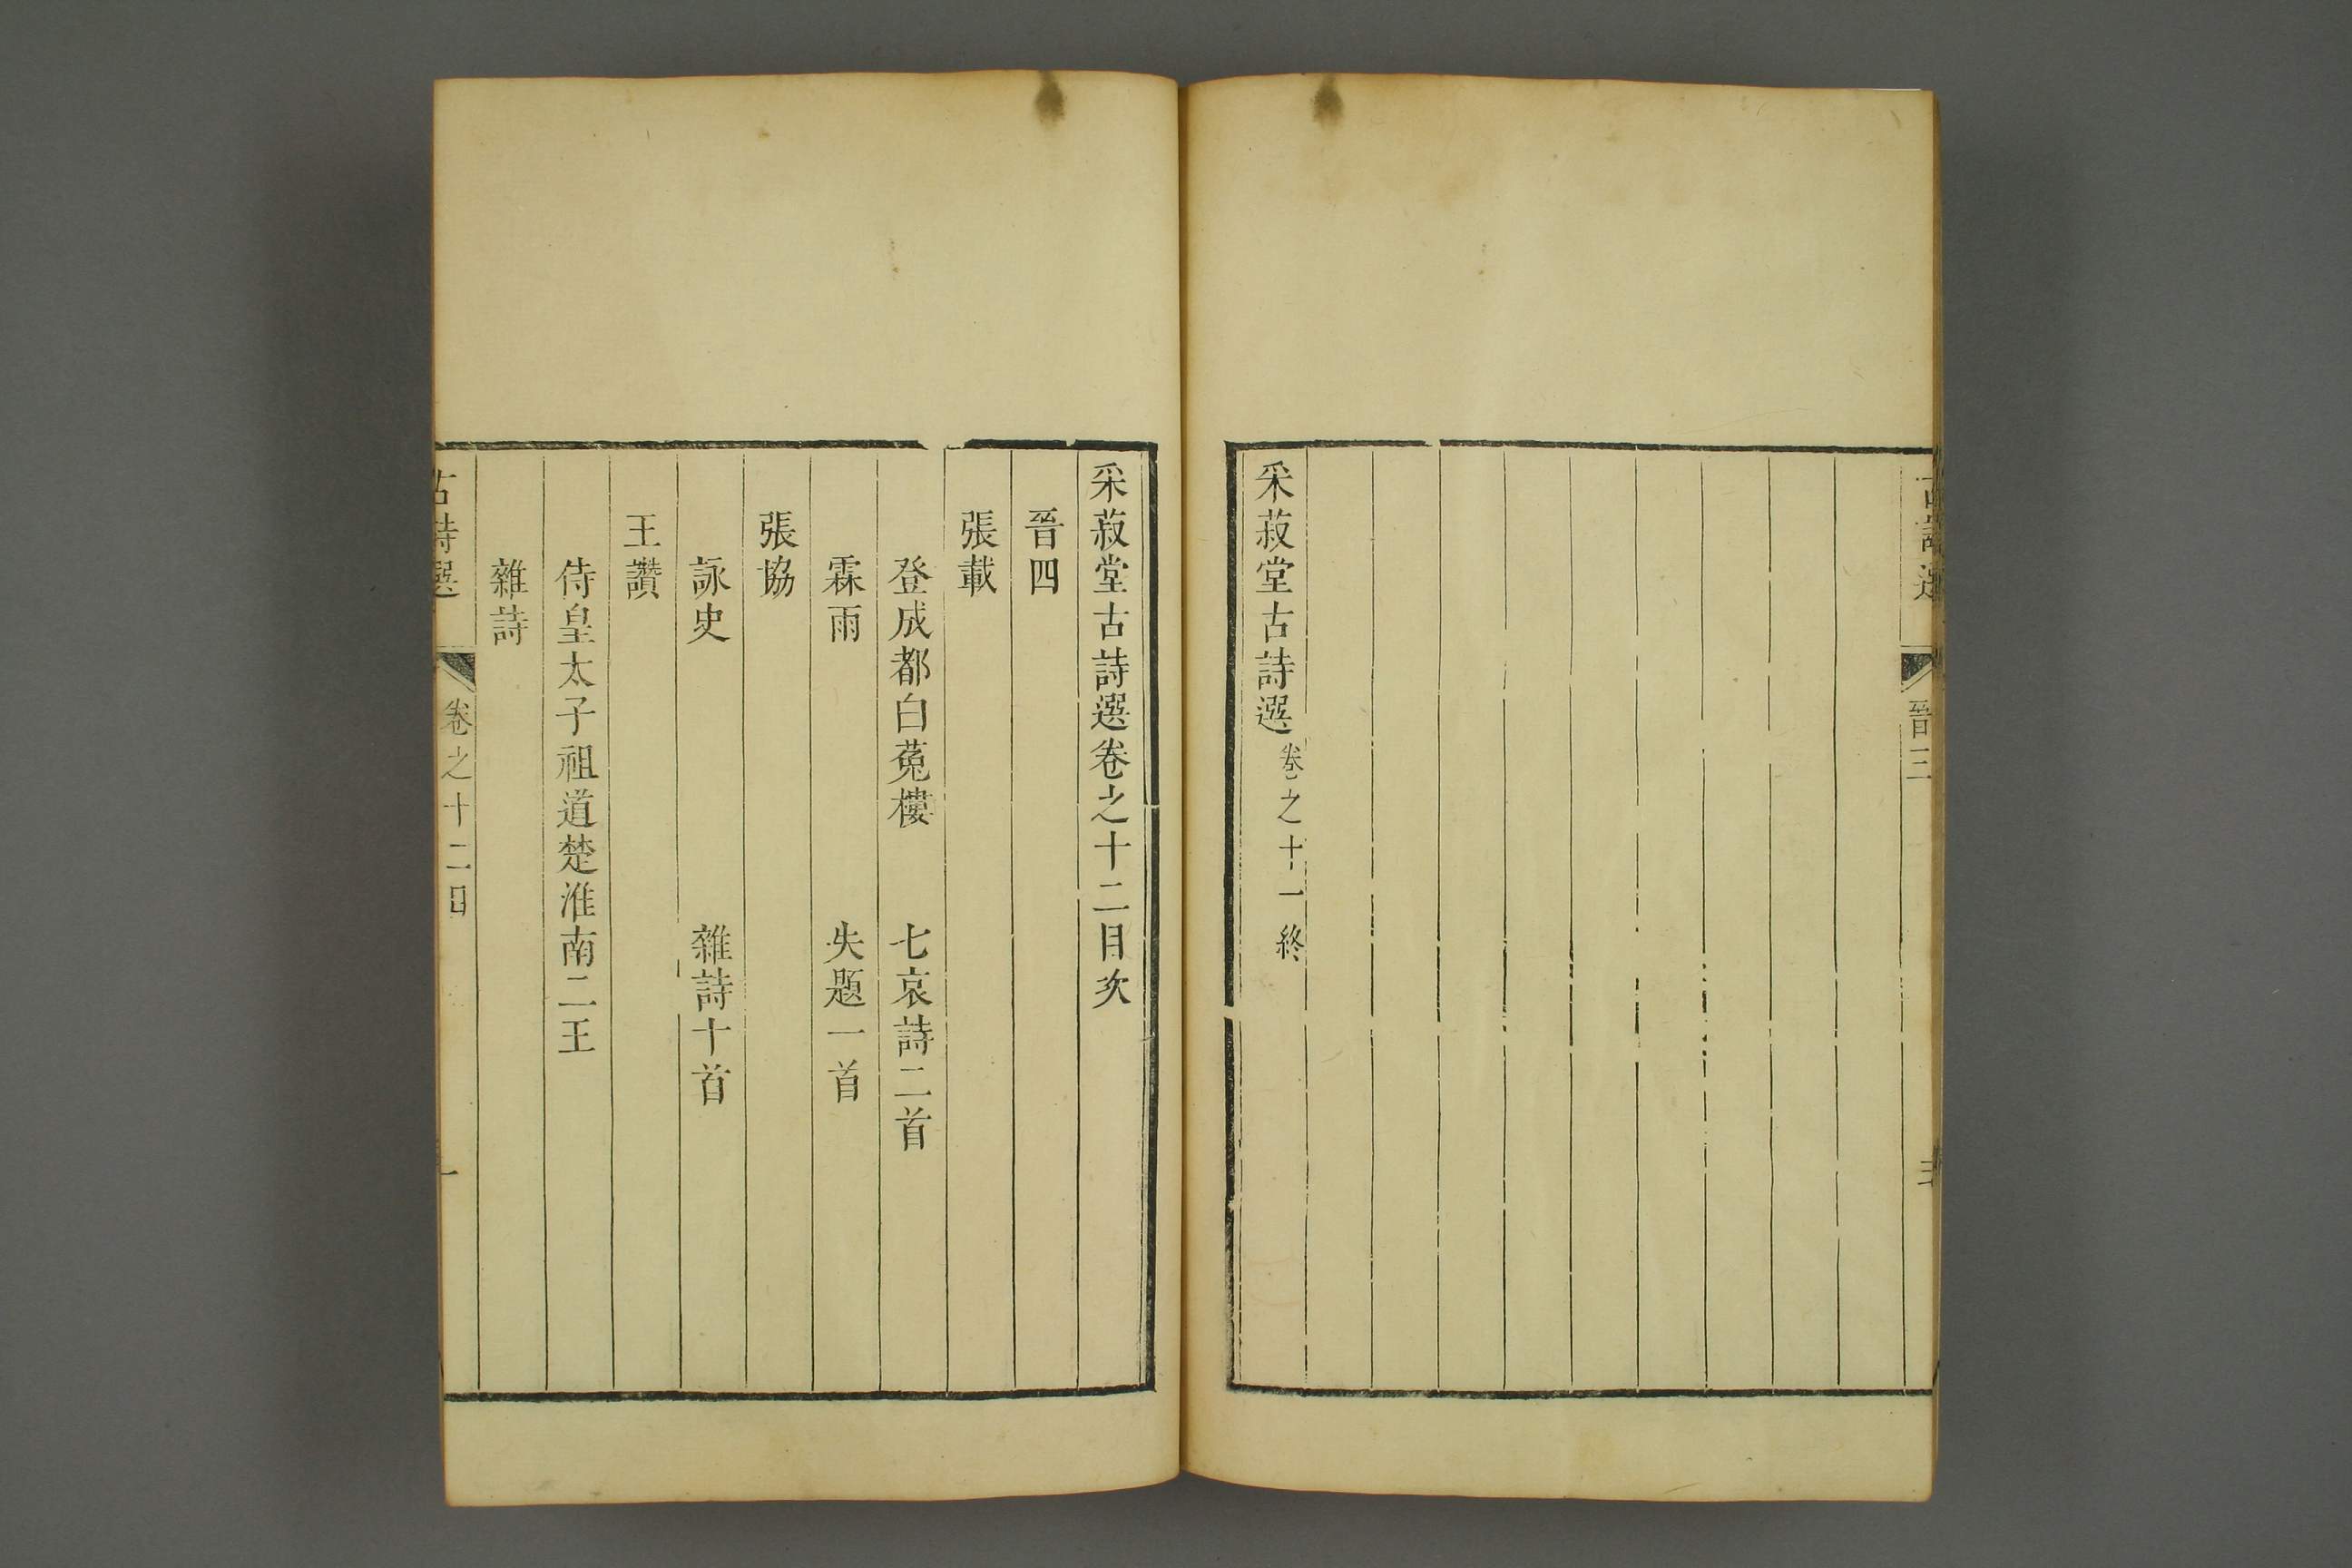 古詩選 晉三
采菽堂古詩選卷之十一終
采菽堂古詩選卷之十二目次
晉四
張載
登成都白菟樓 七哀詩二首
霖雨 失題一首
張協
詠史 雜詩十首
王讚
侍皇太子祖道楚淮南二王
雜詩
古詩選 卷之十二目 一